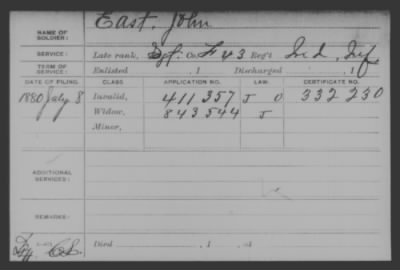 East, John
NAME OF SOLDIER:
SERVICE: Late rank, Sgt. Co. F 43 Reg't Ind. Inf
TERM OF SERVICE: Enlisted , 1 Discharged , 1
DATE OF FILING. CLASS. APPLICATION NO. LAW. CERTIFICATE NO.
1880 July 8 Invalid, 411 357 J O 332 230
Widow, 843 544 J
Minor,
ADDITIONAL SERVICES:
REMARKS:
Died , 1 , at